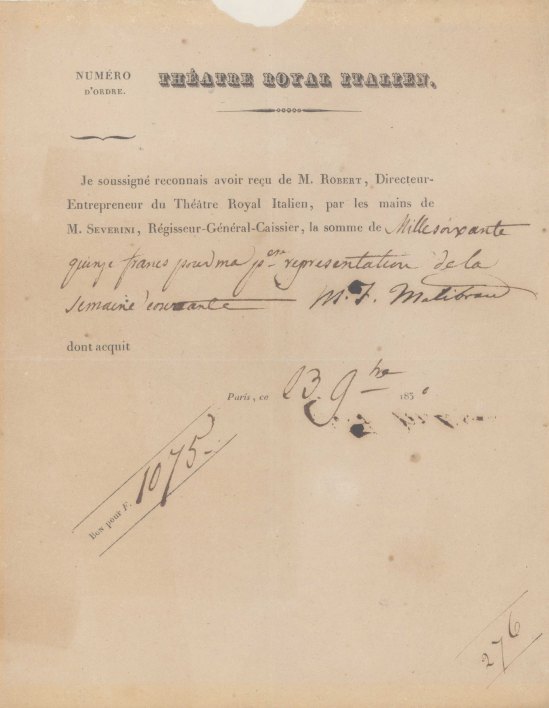 NUMÉRO
D'ORDRE.
THÉATRE ROYAL ITALIEN.
Je soussigné reconnais avoir reçu de M. ROBERT, Directeur-
Entrepreneur du Théâtre Royal Italien, par les mains de
M. SEVERINI, Régisseur-Général-Caissier, la somme de Mille soixante
quinze francs pour ma p.ère representation de la
semaine courante M. F. Malibran
dont acquit
Paris, ce 23. 9bre 1830
Bon pour F. 1075
276